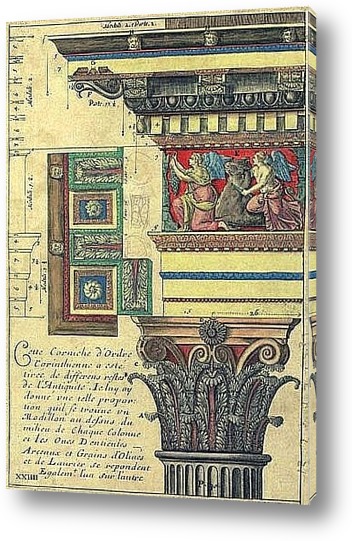 Modul. 2. Part. 2.
Modul. 2.
Cette Corniche d'Ordre
Corinthienne a esté
tirée de differens restes
de l'Antiquité. Je luy ay
donné vne telle propor
tion quil se trouve vn
Modillon au dessus du
milieu de Chaque Colonne
et les Oues Denticules
et Grains d'Olives
et de Laurier se repondent
Egalemt. l'un sur l'autre
XXIIII